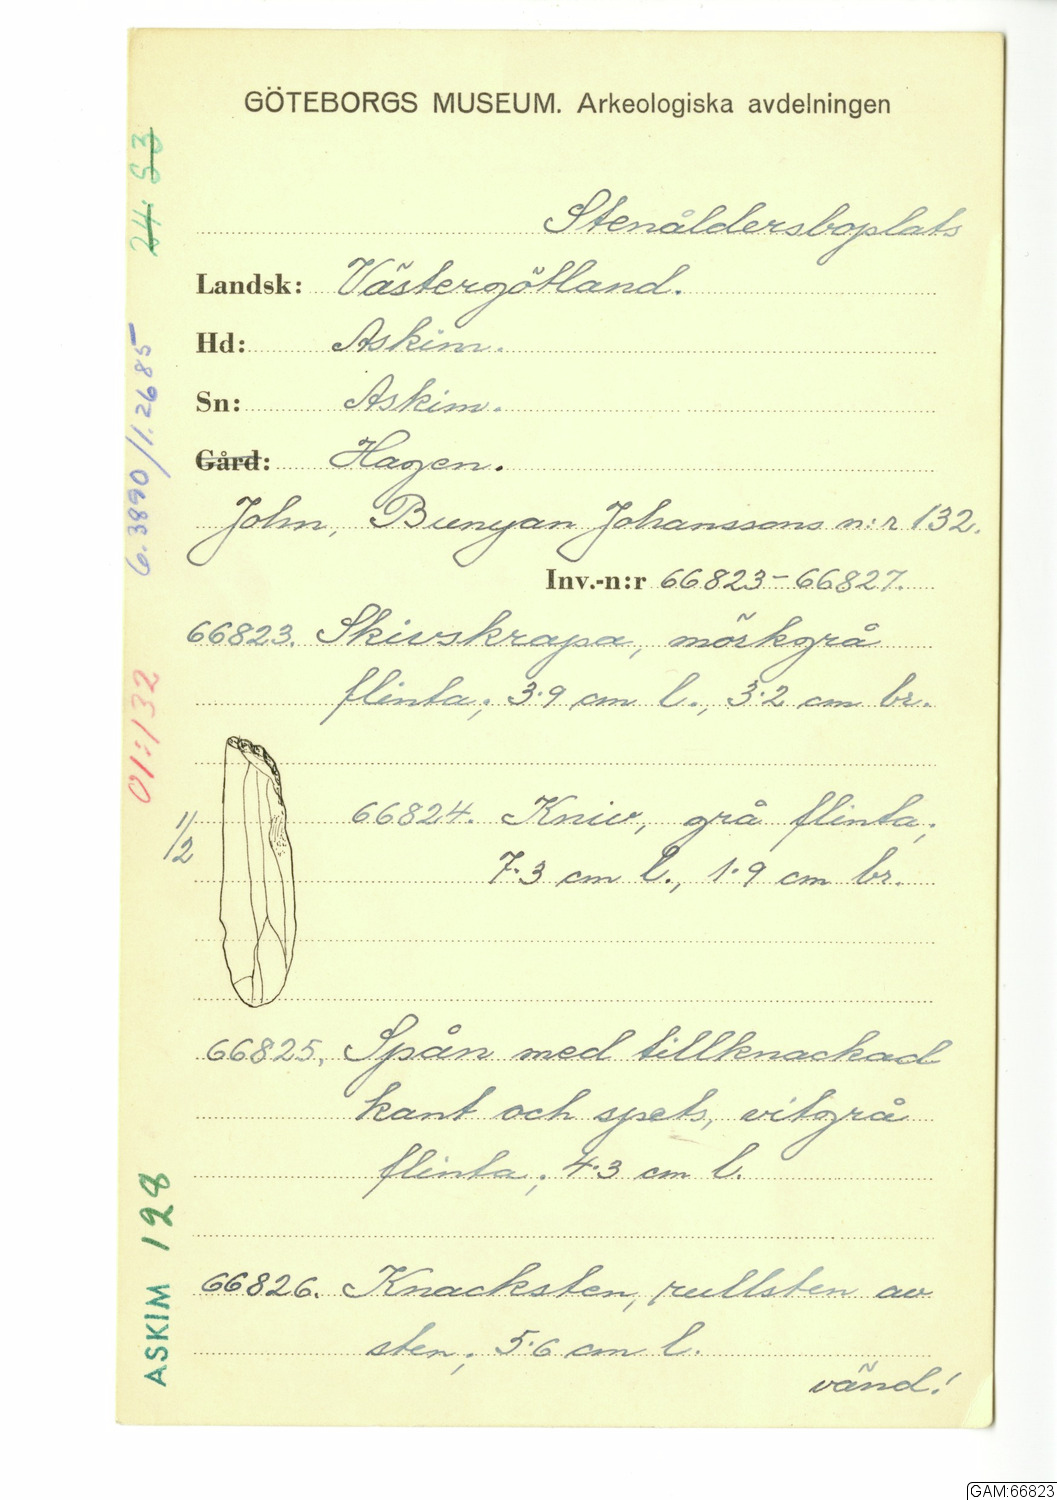 GÖTEBORGS MUSEUM. Arkeologiska avdelningen
Stenåldersboplats
Landsk: Västergötland.
Hd: Askim.
Sn: Askim.
Gård: Hagen.
John, Bunyan Johanssons n:r 132.
Inv.-n:r 66823-66827.
66823. Skivskrapa, mörkgrå
flinta; 3.9 cm l., 3.2 cm br.
1/2
66824. Kniv, grå flinta;
7.3 cm l., 1.9 cm br.
66825. Spån med tillknackad
kant och spets, vitgrå
flinta; 4.3 cm l.
66826. Knacksten, rullsten av
sten; 5.6 cm l.
vänd!
24 53
6.3890/1.2685
01:132
ASKIM 128
GAM:66823